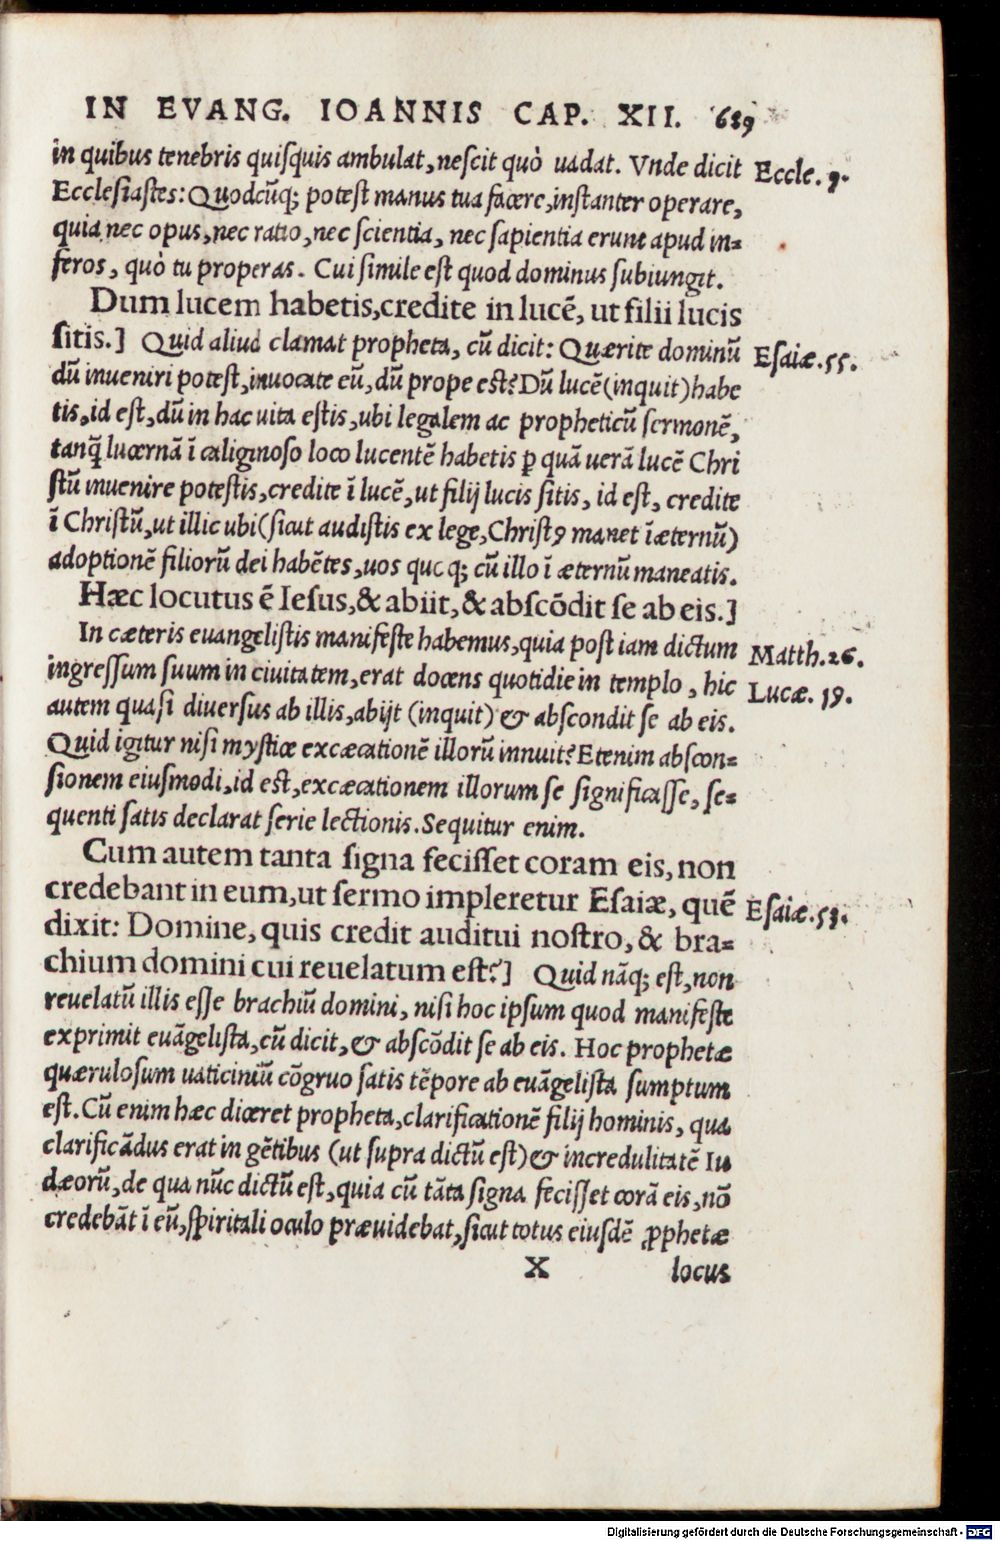 IN EVANG. IOANNIS CAP. XII. 689
in quibus tenebris quiſquis ambulat, neſcit quò uadat. Vnde dicit Eccle. 9.
Eccleſiaſtes: Quodcūq; poteſt manus tua facere, inſtanter operare,
quia nec opus, nec ratio, nec ſcientia, nec ſapientia erunt apud in=
feros, quò tu properas. Cui ſimile eſt quod dominus ſubiungit.
Dum lucem habetis, credite in lucē, ut filii lucis
ſitis.] Quid aliud clamat propheta, cū dicit: Quærite dominū Eſaiæ. 55.
dū inueniri poteſt, inuocate eū, dū prope eſt? Dū lucē (inquit) habe
tis, id eſt, dū in hac uita eſtis, ubi legalem ac propheticū ſermonē,
tanq̄ lucernā ī caliginoſo loco lucentē habetis ꝑ quā uerā lucē Chri
ſtū inuenire poteſtis, credite ī lucē, ut filij lucis ſitis, id eſt, credite
ī Chriſtū, ut illic ubi (ſicut audiſtis ex lege, Chriſtꝰ manet īæternū)
adoptionē filiorū dei habētes, uos quoq; cū illo ī æternū maneatis.
Hæc locutus ē Ieſus, & abiit, & abſcōdit ſe ab eis.]
In cæteris euangeliſtis manifeſte habemus, quia poſt iam dictum Matth. 26.
ingreſſum ſuum in ciuitatem, erat docens quotidie in templo, hic Lucæ. 19.
autem quaſi diuerſus ab illis, abijt (inquit) & abſcondit ſe ab eis.
Quid igitur niſi myſticæ excæcationē illorū innuit? Etenim abſcon=
ſionem eiuſmodi, id eſt, excæcationem illorum ſe ſignificaſſe, ſe=
quenti ſatis declarat ſerie lectionis. Sequitur enim.
Cum autem tanta ſigna feciſſet coram eis, non
credebant in eum, ut ſermo impleretur Eſaiæ, quē Eſaiæ. 53.
dixit: Domine, quis credit auditui noſtro, & bra=
chium domini cui reuelatum eſt?] Quid nāq; eſt, non
reuelatū illis eſſe brachiū domini, niſi hoc ipſum quod manifeſte
exprimit euāgeliſta, cū dicit, & abſcōdit ſe ab eis. Hoc prophetæ
quærulosum uaticiniū cōgruo ſatis tēpore ab euāgeliſta ſumptum
eſt. Cū enim hæc diceret propheta, clarificationē filij hominis, qua
clarificādus erat in gētibus (ut ſupra dictū eſt) & incredulitatē Iu
dæorū, de qua nūc dictū eſt, quia cū tāta ſigna feciſſet corā eis, nō
credebāt ī eū, ſpiritali oculo præuidebat, ſicut totus eiuſdē ꝓphetæ
X locus
Digitalisierung gefördert durch die Deutsche Forschungsgemeinschaft - DFG